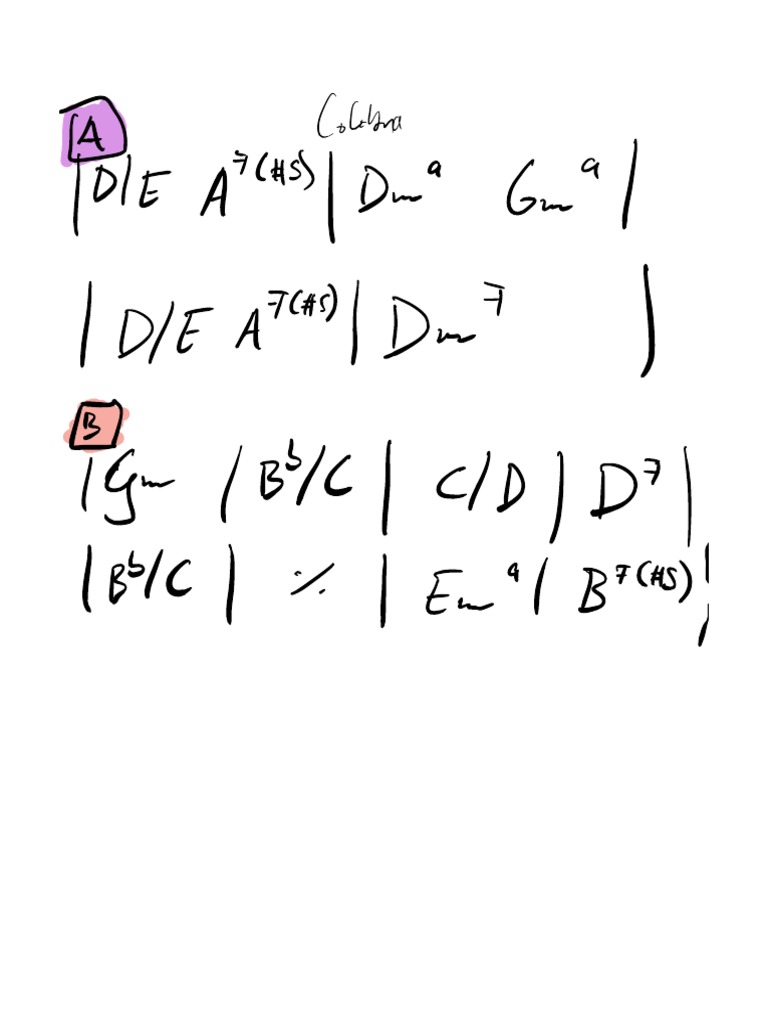 A
| D/E A7(#5) | Dm9 Gm9 |
| D/E A7(#5) | Dm7 |
B
| Gm | Bb/C | C/D | D7 |
| Bb/C | ⁒ | Em9 | B7(#5) |